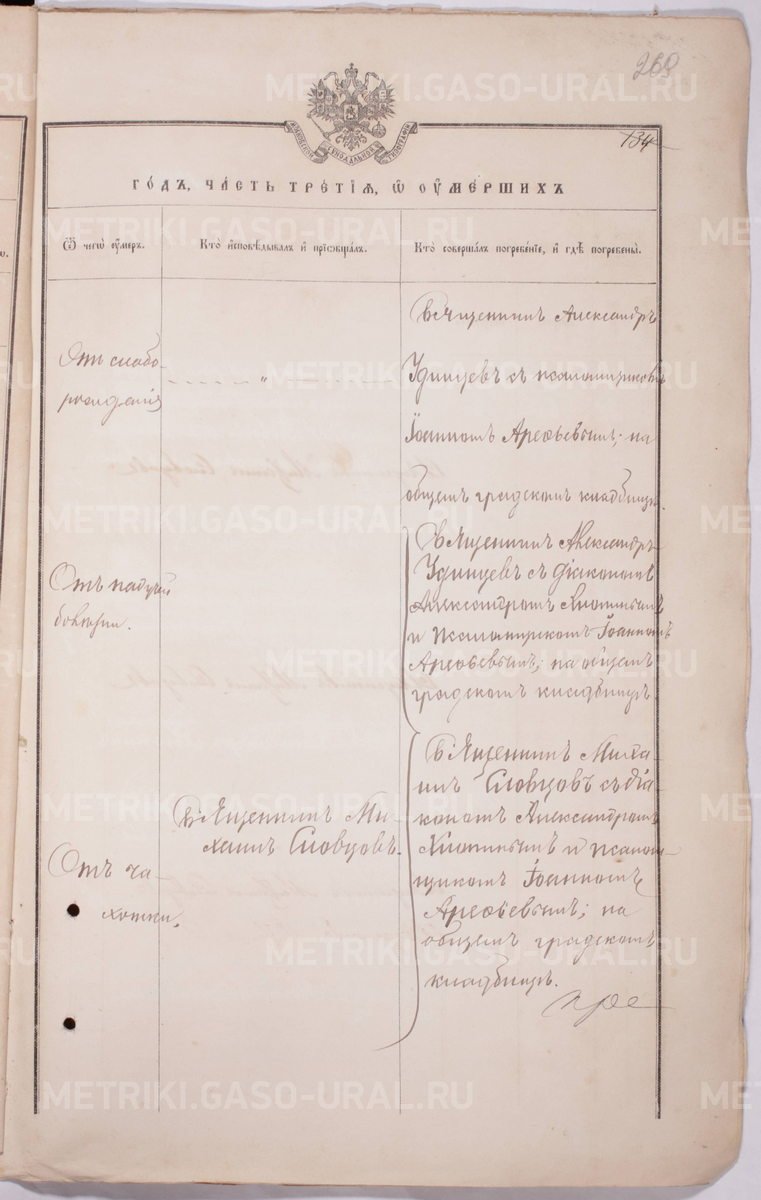 269
134
МОСКОВСКОЙ СѴНОДАЛЬНОЙ ТИПОГРАФІИ
ГОДЪ, ЧАСТЬ ТРЕТІЯ, Ѿ ОУМЕРШИХЪ
Ѿ чегѡ оумеръ.
Кто исповѣдывалъ и прїѡбщалъ.
Кто совершалъ погребеніе, и гдѣ погребены.
Отъ слабо-
рожденія
"
Священникъ Александръ
Удинцевъ съ псаломщикомъ
Іоанномъ Арефьевымъ; на
общемъ градскомъ кладбищѣ.
Отъ падучей
болѣзни.
Священникъ Александръ
Удинцевъ съ діакономъ
Александромъ
и Псаломщикомъ Іоанномъ
Арефьевымъ; на общемъ
градскомъ кладбищѣ.
Отъ ча-
хотки.
Священникъ Ми-
хаилъ Словцовъ.
Священникъ Миха-
илъ Словцовъ съ діа-
кономъ Александромъ
и Псалом-
щикомъ Іоанномъ
Арефьевымъ; на
общемъ градскомъ
кладбищѣ.
METRIKI.GASO-URAL.RU